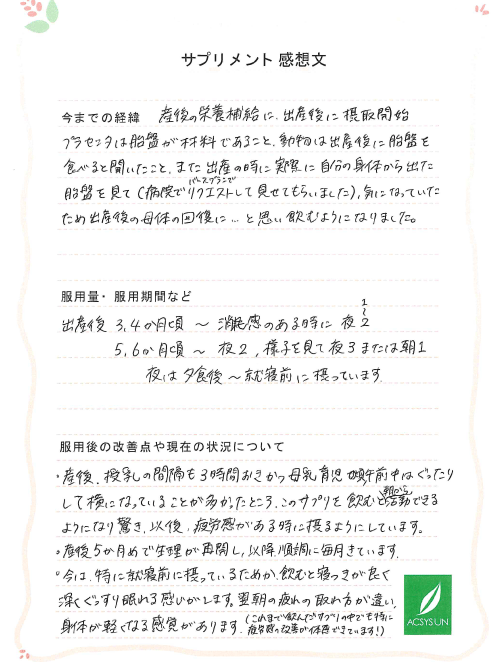 サプリメント 感想文
今までの経緯 産後の栄養補給に、出産後に摂取開始
プラセンタは胎盤が材料であること、動物は出産後に胎盤を
食べると聞いたこと、また出産の時に実際に自分の身体から出た
バースプランで
胎盤を見て(病院でリクエストして見せてもらいました)、気になっていた
ため出産後の母体の回復に…と思い飲むようになりました。
服用量・服用期間など
1
〜
出産後 3,4か月頃 〜 消耗感のある時に 夜2
5,6か月頃 〜 夜2、様子を見て夜3または朝1
夜は夕食後〜就寝前に摂っています。
服用後の改善点や現在の状況について
・産後、授乳の間隔も3時間おきかつ母乳育児で午前中はぐったり
朝から
して横になっていることが多かったところ、このサプリを飲むと活動できる
ようになり驚き、以後、疲労感がある時に摂るようにしています。
・産後5か月めで生理が再開し、以降順調に毎月きています。
・今は、特に就寝前に摂っているためか、飲むと寝つきが良く
深くぐっすり眠れる感じがします。翌朝の疲れの取れ方が違い、
身体が軽くなる感覚があります。(これまで飲んだサプリの中でも特に
疲労感の改善が体感できています!)
ACSYSUN